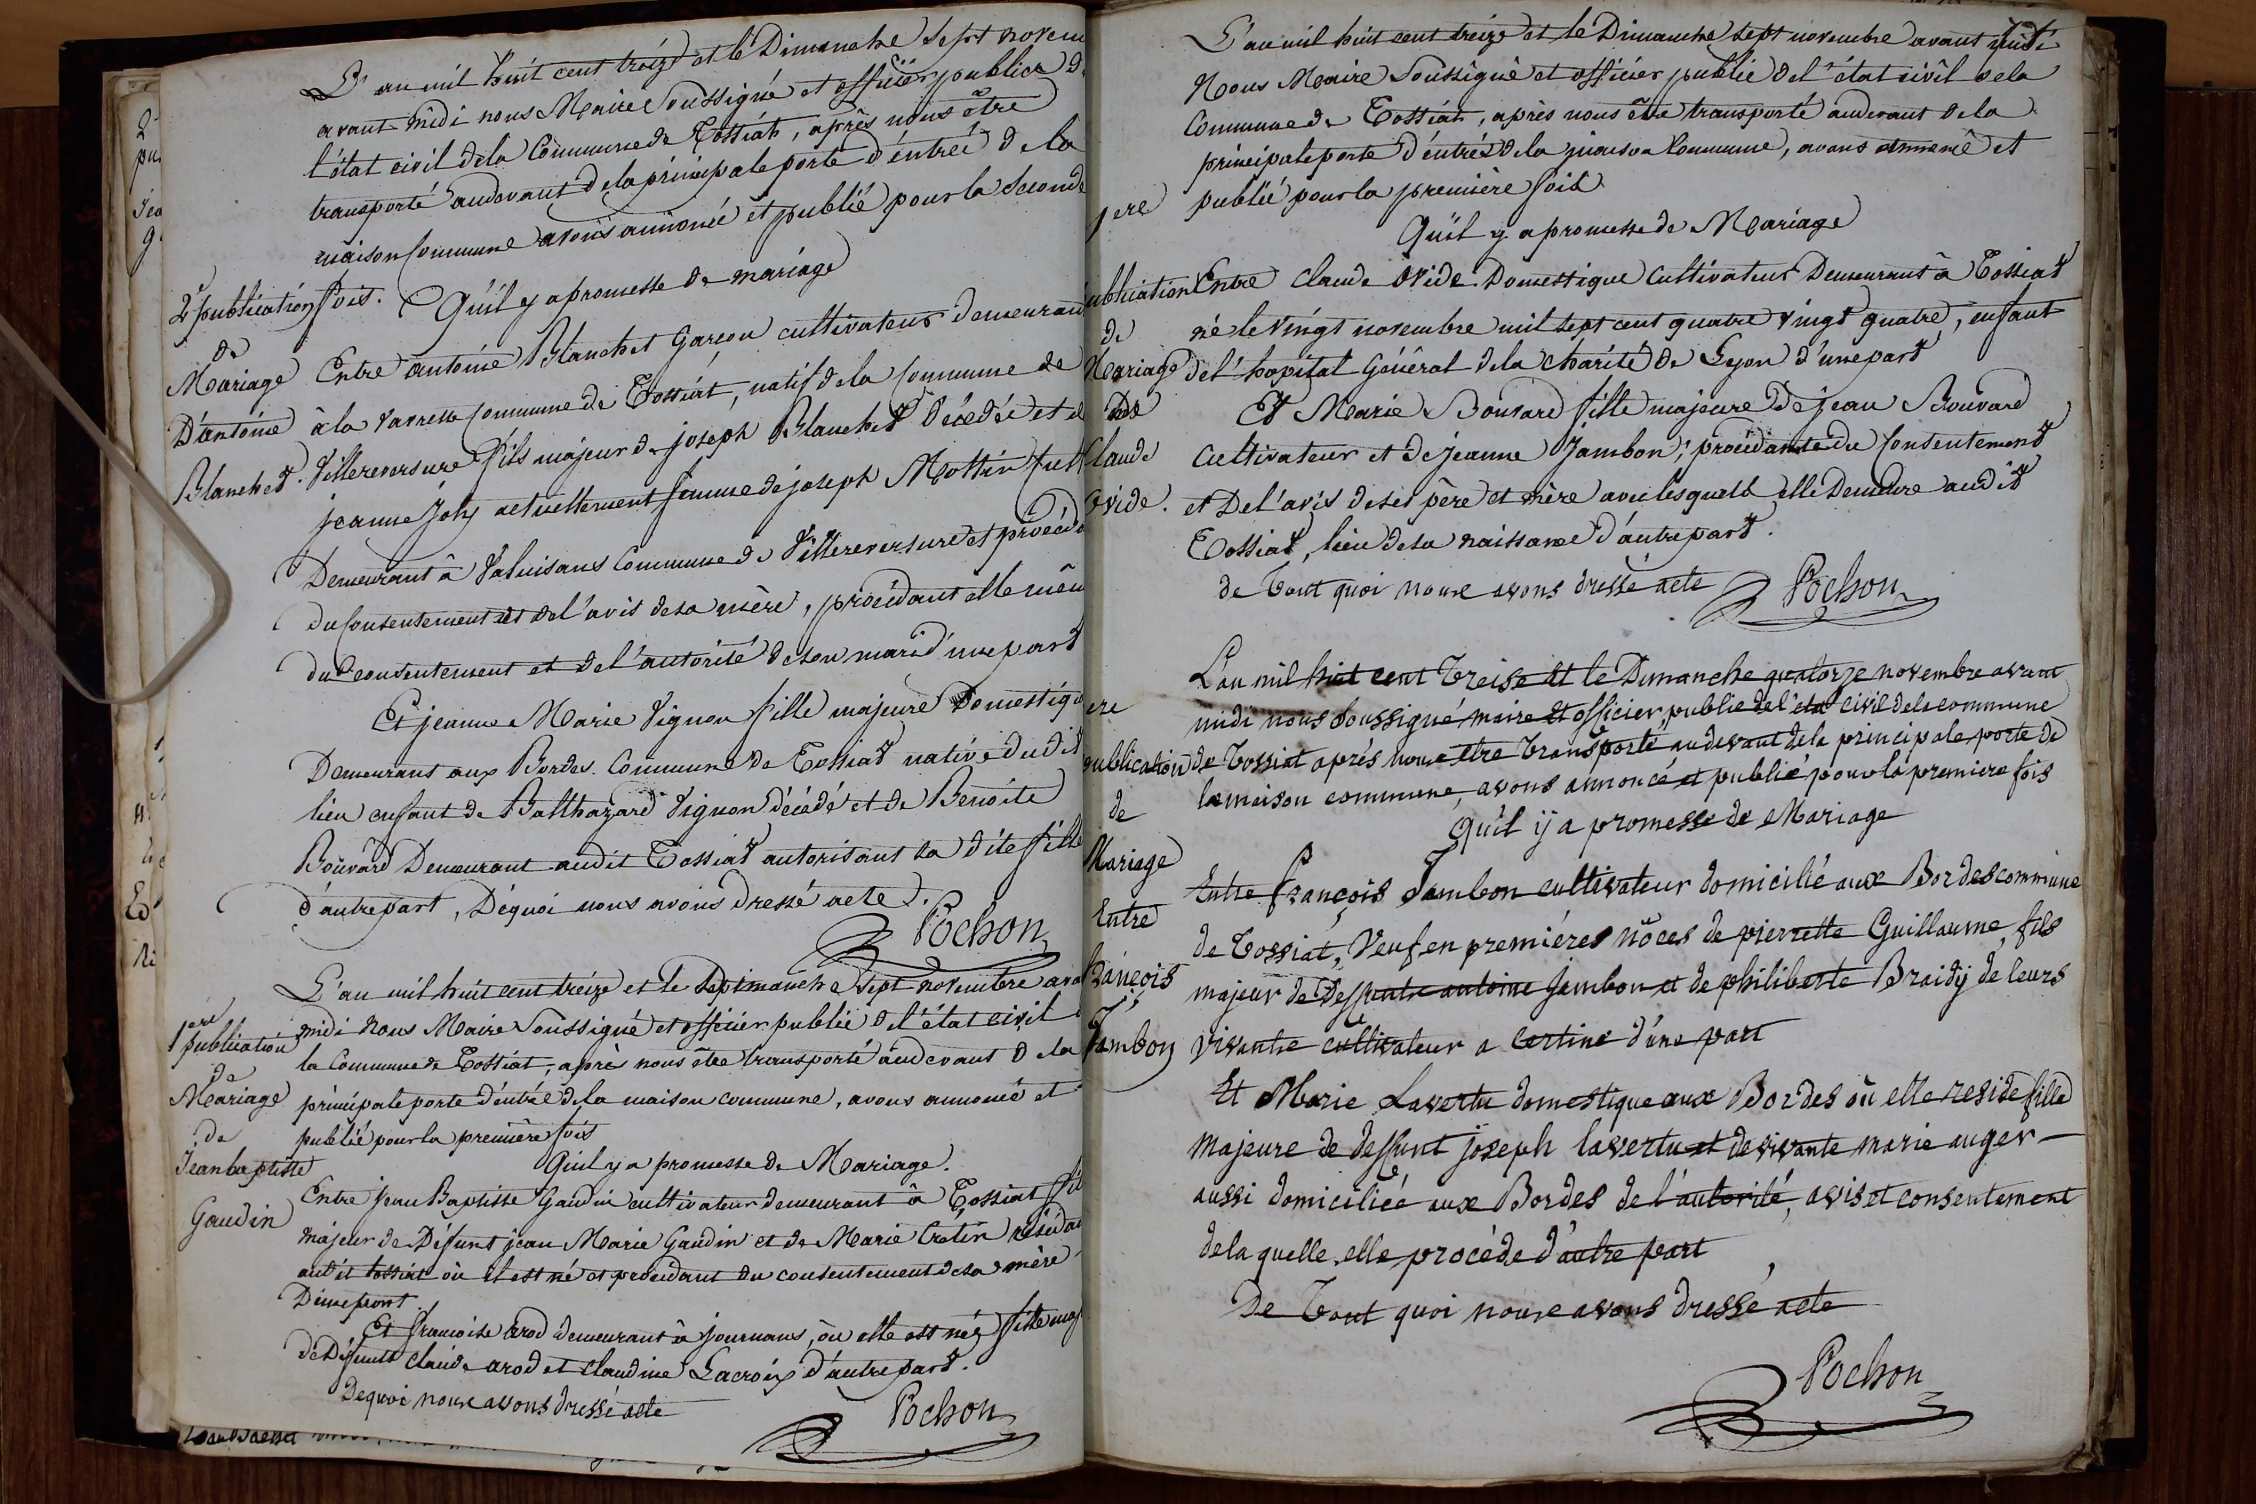 L'an mil huit cent treize et le Dimanche sept novem
avant midi nous Maire Soussigné et officier public D
l'état civil de la Commune de Tossiat, après nous être
transporté audevant de la principale porte d'entrée de la
maison Commune avons annoncé et publié pour la Seconde
2e publication fois. Qu'il y a promesse de mariage
de
Mariage Entre antoine Blanchet Garçon cultivateur demeurant
D'antoine à la Varrette Commune de Tossiat, natif de la Commune de
Blanchet. Villereversure fils majeur de joseph Blanchet décédé et de
jeanne Joly actuellement femme de joseph Mottin
Demeurant à Valuisans Commune de Villereversure et procéda
du Consentement et de l'avis de sa mère, procédant elle mêm
du consentement et de l'autorité de son mari d'une part
Et jeanne Marie Vignon fille majeure Domestiqu
Demeurant aux Bordes Commune de Tossiat native dudit
lieu enfant de Balthazard Vignon décédé et de Benoite
Bouvard Demeurant audit Tossiat autorisant sa dite fille
d'autre part, De quoi nous avons dressé acte.
Pochon
L'an mil huit cent treize et le Dimanche sept novembre ava
1ere midi nous Maire Soussigné et officier public de l'état civil d
publication la Commune de Tossiat, après nous être transporté audevant de la
de
Mariage principale porte d'entrée de la maison commune, avons annoncé et
de publié pour la première fois
Jean baptiste Qu'il y a promesse de Mariage.
Gaudin Entre jean Baptiste Gaudin cultivateur demeurant à Tossiat fils
majeur de Défunt jean Marie Gaudin et de Marie Cretin résidan
audit tossiat où il est né et procédant du consentement de sa mère
D'une part.
Et françoise arod demeurant à journans, où elle est née, fille maj
de Défunts claude arod et claudine Lacroix d'autre part.
De quoi nous avons dressé acte
Pochon
L'an mil huit cent treize et le Dimanche sept novembre avant midi
Nous Maire Soussigné et officier public de l'état civil de la
Commune de Tossiat, après nous être transporté audevant de la
principale porte d'entrée de la maison Commune, avons annoncé et
1ere publié pour la première fois
Qu'il y a promesse de Mariage
ublication Entre Claude Ovide Domestique Cultivateur Demeurant à Tossiat
de né le Vingt novembre mil sept cent quatre Vingt quatre, enfant
Mariage de l'hopital Général de la Charité de Lyon d'une part
de Et Marie Bouvard fille majeure De jean Bouvard
Claude Cultivateur et de jeanne Jambon, procédante du Consentement
Ovide. et De l'avis de ses père et mère avec lesquels elle Demeure audit
Tossiat, lieu de sa naissance d'autre part.
de tout quoi nous avons dressé acte Pochon
L'an mil huit cent treise et le Dimanche quatorze novembre avant
ere midi nous soussigné maire et officier public de l'état civil de la commune
publication de Tossiat après nous etre transporté au devant de la principale porte de
la maison commune, avons annoncé et publié pour la premiere fois
de Qu'il ÿ a promesse de Mariage
Mariage Entre françois Jambon cultivateur domicilié aux Bordes commune
Entre de Tossiat, Veuf en premiéres nôces de pierrette Guillaume, fils
françois majeur de deffunt antoine Jambon et de philiberte Braidÿ de leurs
Jambon vivants cultivateur a Certine d'une part
Et Marie Lavertu domestique aux Bordes où elle reside fille
majeure de deffunt joseph lavertu et de vivante marie auger
aussi domiciliée aux Bordes de l'autorité, avis et consentement
de la quelle elle procéde d'autre part
De Tout quoi nous avons dressé acte
Pochon